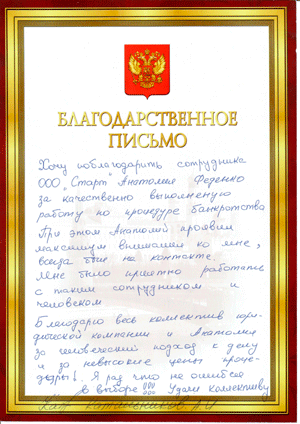 БЛАГОДАРСТВЕННОЕ
ПИСЬМО
Хочу поблагодарить сотрудника
ООО "Старт" Анатолия Феденко
за качественно выполненую
работу по процедуре банкротства
При этом Анатолий проявил
максимум внимания ко мне,
всегда был на контакте.
Мне было приятно работать
с таким сотрудником и
человеком
Благодарю весь коллектив юри-
дической компании и Анатолия
за человеческий подход к делу
и за невысокие цены проце-
дуры!. Я рад что не ошибся
в выборе!!! Удачи коллективу